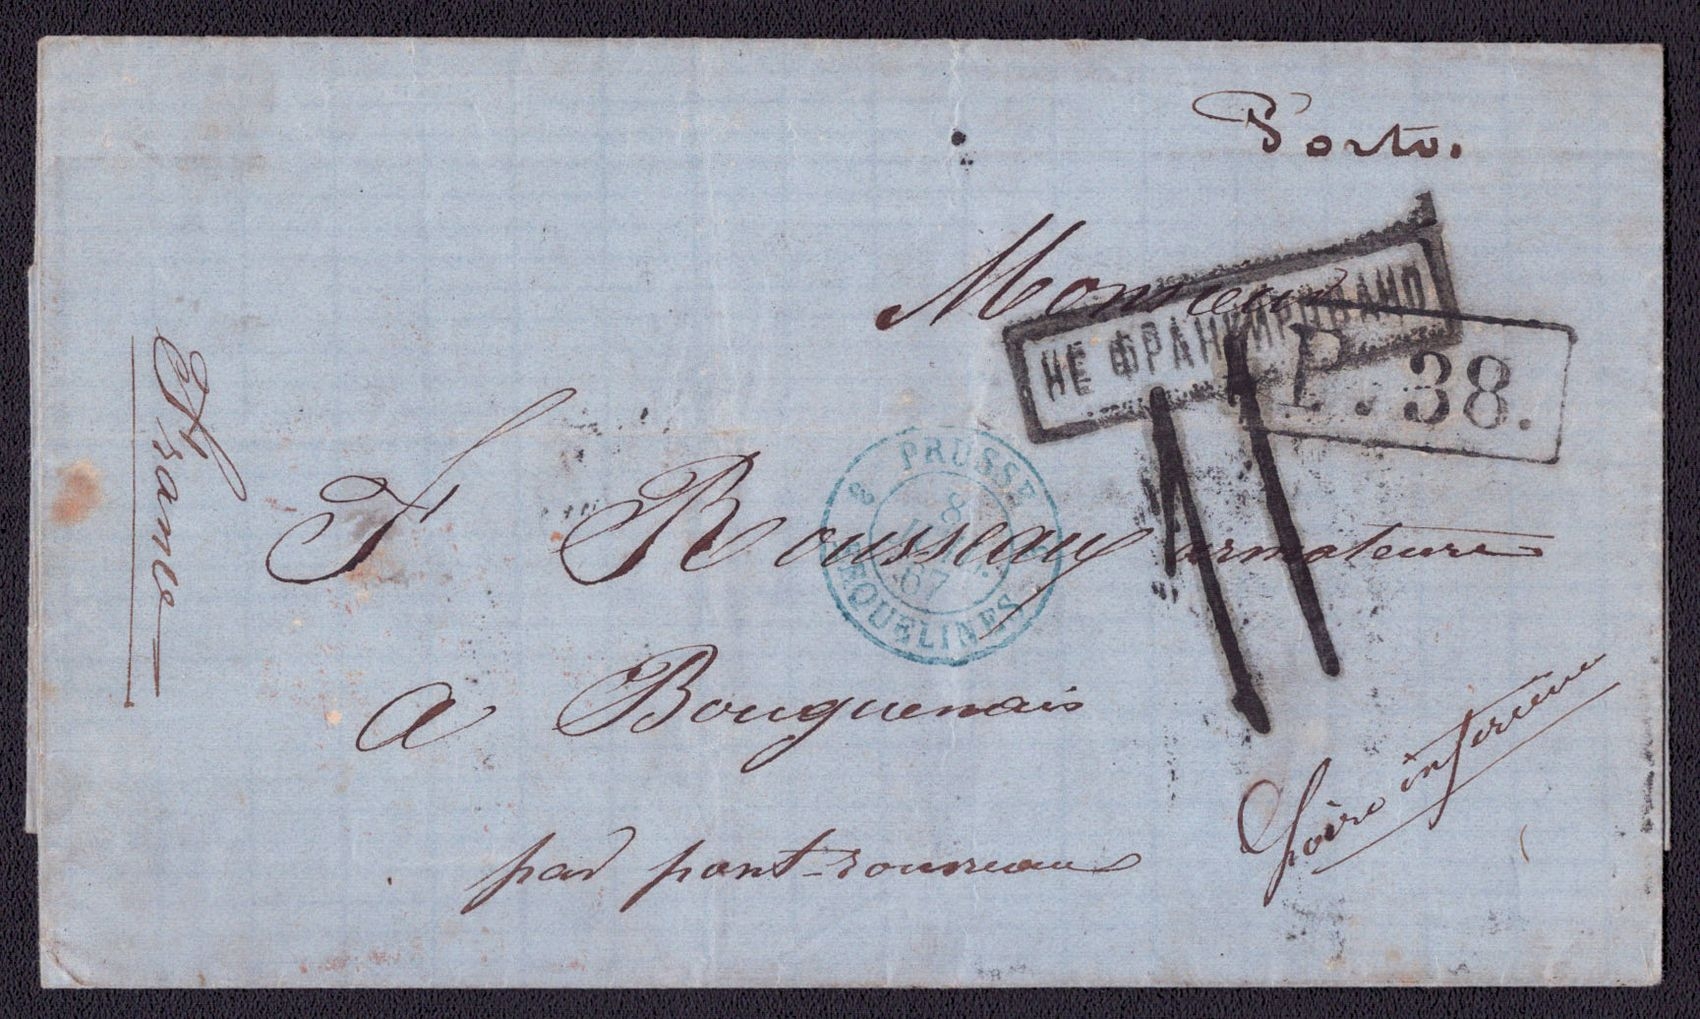 Porto.
Monsieur
НЕ ФРАНКИРОВАНО
P. 38.
11
F Rousseau armateure
PRUSSE
3 3
8
67
ERQUELINES
a Bouguenais
par pont-rousseau
Loire inferieure
France